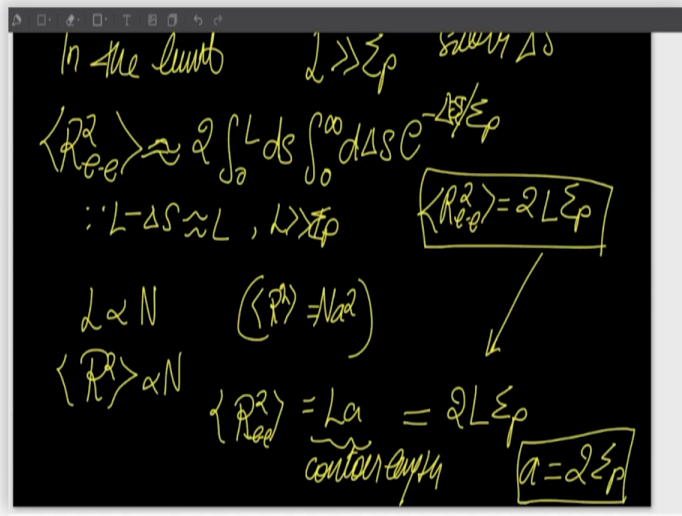 In the limit L >> ξp small ΔS
⟨R²e-e⟩ ≈ 2 ∫₀ᴸ ds ∫₀^∞ dΔS e^(-ΔS/ξp)
∵ L-ΔS ≈ L , L>>ξp
⟨R²e-e⟩ = 2Lξp
L ∝ N (⟨R²⟩ = Na²)
⟨R²⟩ ∝ N
⟨R²ee⟩ = La = 2Lξp
contour length
a = 2ξp